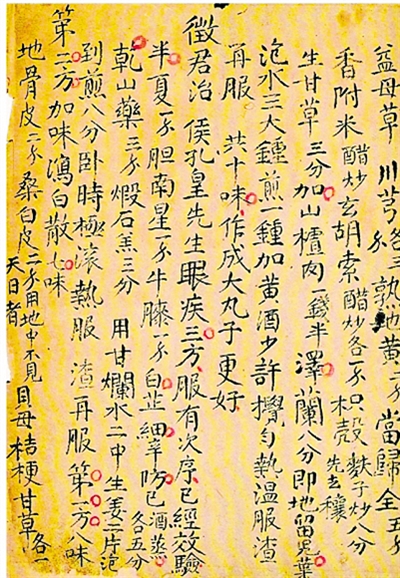 益母草 川芎各三钱 熟地黄二钱 當歸全五
香附米醋炒玄胡索醋炒各一钱 枳殼麩子炒八分先去穰
生甘草三分加山樝肉一錢半澤蘭八分即地留兒葉
泡水三大鍾煎一鍾加黄酒少許攪匀熱温服渣
再服 共十味作成大丸子更好
徵君治 侯孔皇先生眼疾三方服有次序已經效驗
半夏一钱胆南星一钱牛膝一钱白芷細辛防已酒蒸各五分
乾山藥三钱煅石羔三分 用甘爛水二中生姜一片泡
到煎八分卧時極滚熱服渣再服第二方八味
第二方加味瀉白散七味
地骨皮二钱桑白皮二钱用地中不見天日者貝母桔梗甘草各一